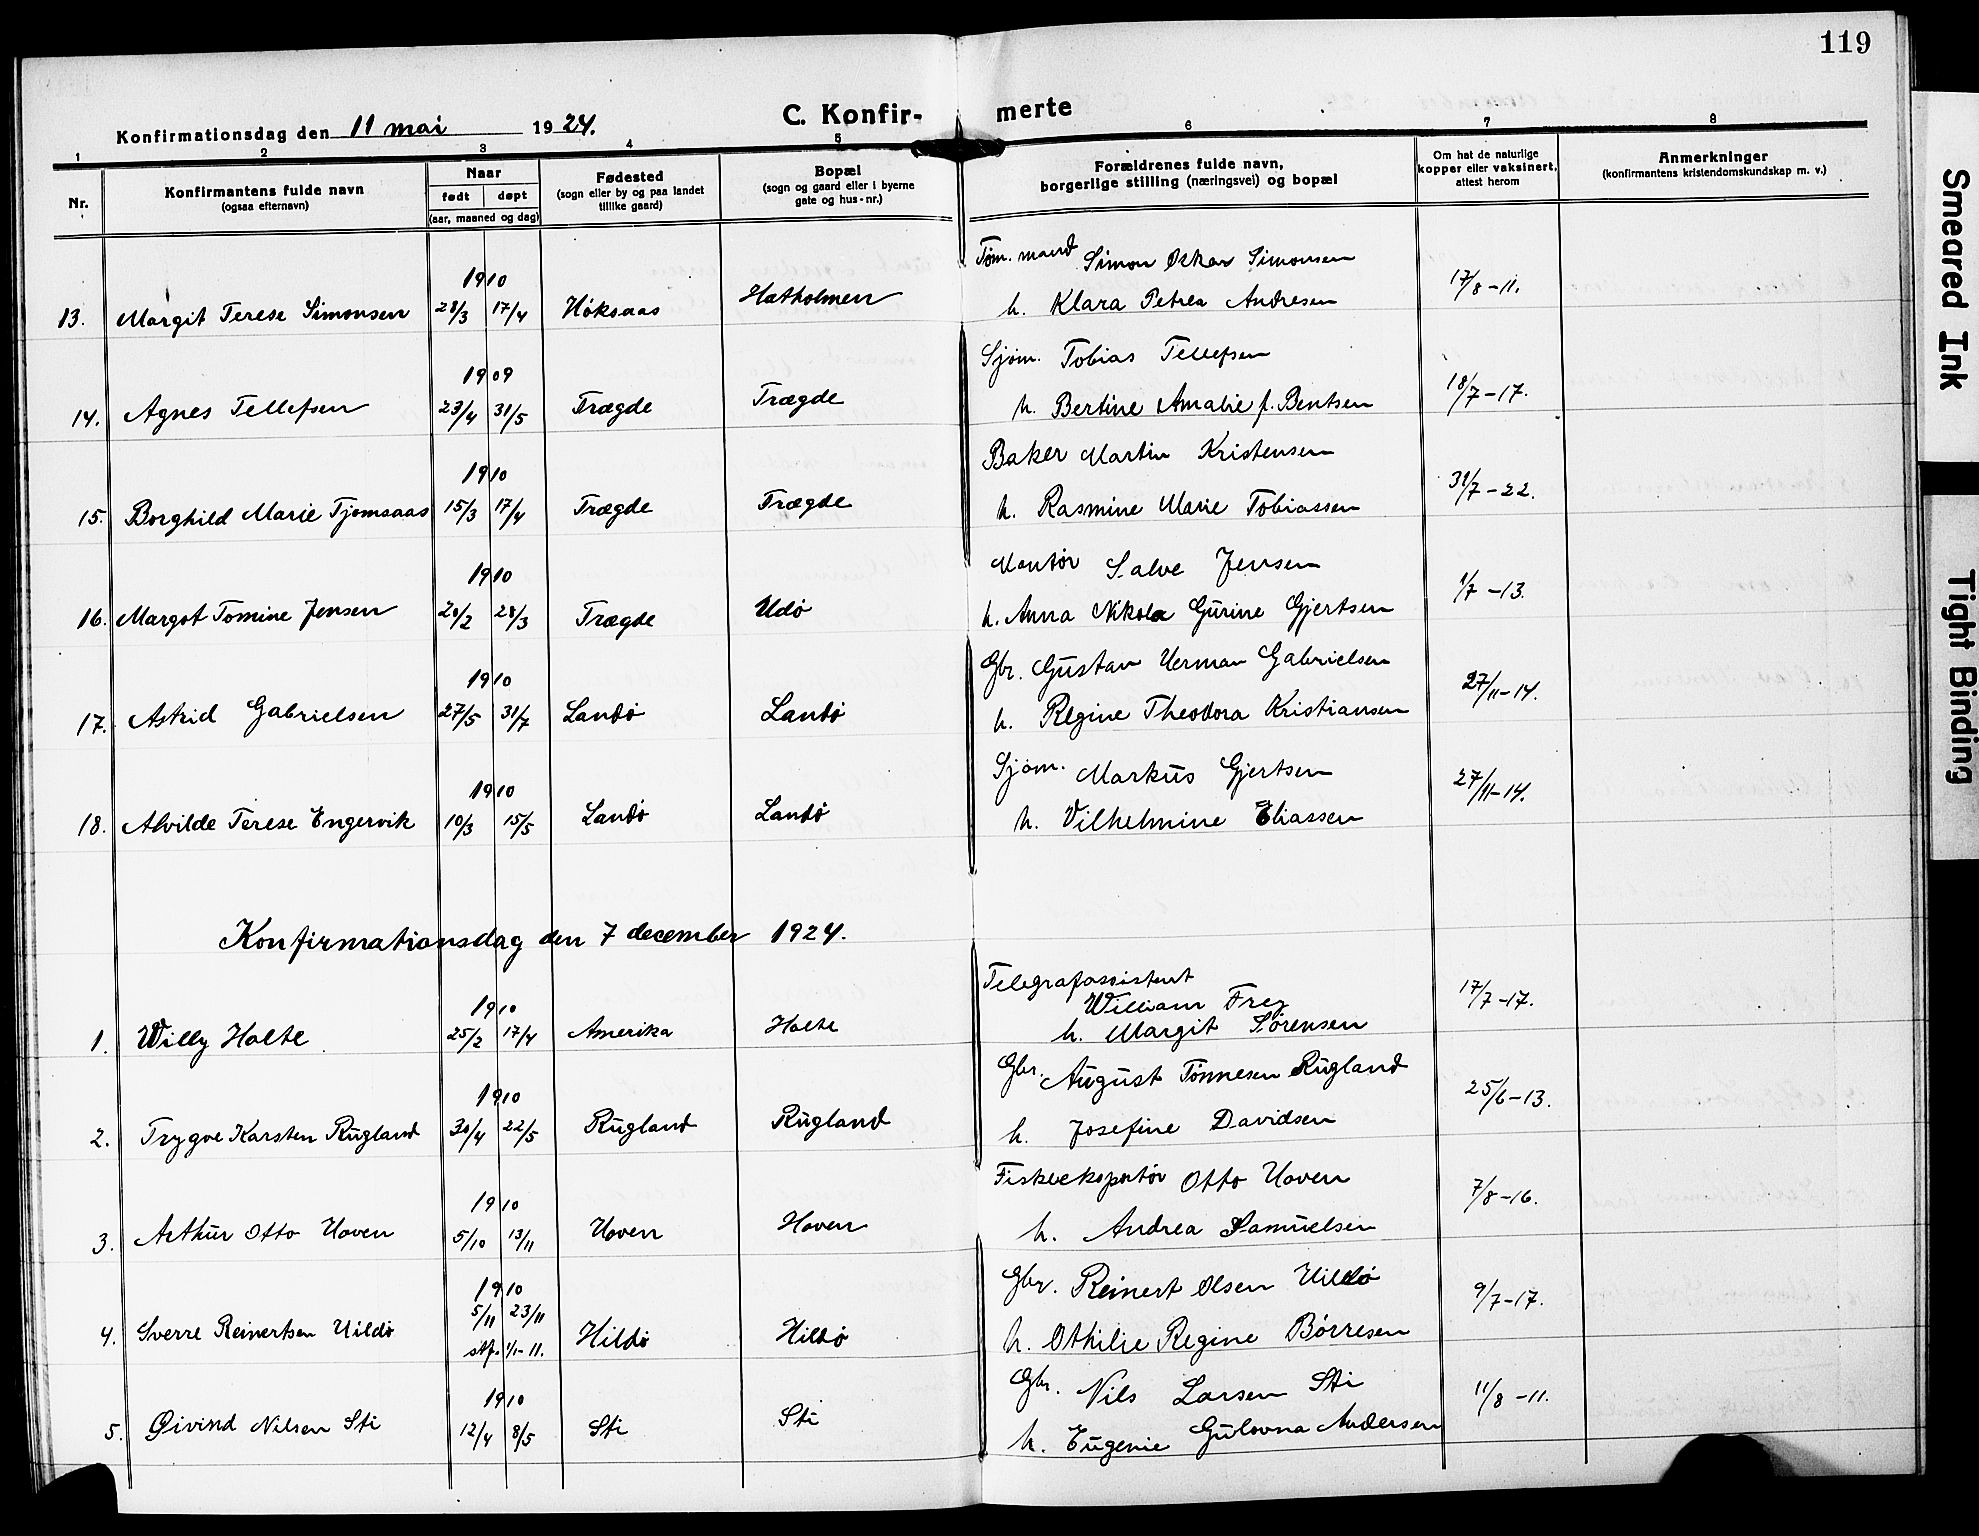 119
C. Konfirmerte
Konfirmationsdag den 11 mai 1924.
1 2 3 4 5 6 7 8
Nr.
Konfirmantens fulde navn
(ogsaa efternavn)
Naar
født døpt
(aar, maaned og dag)
Fødested
(sogn eller by og paa landet
tillike gaard)
Bopæl
(sogn og gaard eller i byerne
gate og hus-nr.)
Forældrenes fulde navn,
borgerlige stilling (næringsvei) og bopæl
Om hat de naturlige
kopper eller vaksinert,
attest herom
Anmerkninger
(konfirmantens kristendomskundskap m. v.)
1910 Tøm. mand Simon Oskar Simonsen
13. Margit Terese Simonsen 28/3 17/4 Høksaas Hatholmen h. Klara Petrea Andresen 17/8-11.
1909 Sjøm. Tobias Tellefsen
14. Agnes Tellefsen 23/4 31/5 Trægde Trægde h. Bertine Amalie f. Bentsen 18/7-17.
1910 Baker Martin Kristensen
15. Borghild Marie Tjomsaas 15/3 17/4 Trægde Trægde h. Rasmine Marie Tobiassen 31/7-22.
1910 Montør Salve Jensen
16. Margot Tomine Jensen 20/2 28/3 Trægde Udø h. Anna Nikola Gurine Gjertsen 1/7-13.
1910 Gbr. Gustav Herman Gabrielsen
17. Astrid Gabrielsen 27/5 31/7 Landø Landø h. Regine Theodora Kristiansen 27/11-14.
1910 Sjøm. Markus Gjertsen
18. Alvilde Terese Engervik 10/3 15/5 Landø Landø h. Vilhelmine Eliassen 27/11-14.
Konfirmationsdag den 7 december 1924.
Telegrafassistent
1910 William Frey
1. Willy Holte 25/2 17/4 Amerika Holte h. Margit Sørensen 17/7-17.
1910 Gbr. August Tønnesen Rugland
2. Trygve Karsten Rugland 30/4 22/5 Rugland Rugland h. Josefine Davidsen 25/6-13.
1910 Fiskeeksportør Otto Hoven
3. Arthur Otto Hoven 5/10 13/11 Hoven Hoven h. Andrea Samuelsen 7/8-16.
1910 Gbr. Reinert Olsen Hildø
5/11 23/11
4. Sverre Reinertsen Hildø stf. 1/1-11. Hildø Hildø h. Othilie Regine Børresen 9/7-17.
1910 Gbr. Nils Larsen Sti
5. Øivind Nilsen Sti 12/4 8/5 Sti Sti h. Eugenie Gulovna Andersen 11/8-11.
Smeared Ink
Tight Binding